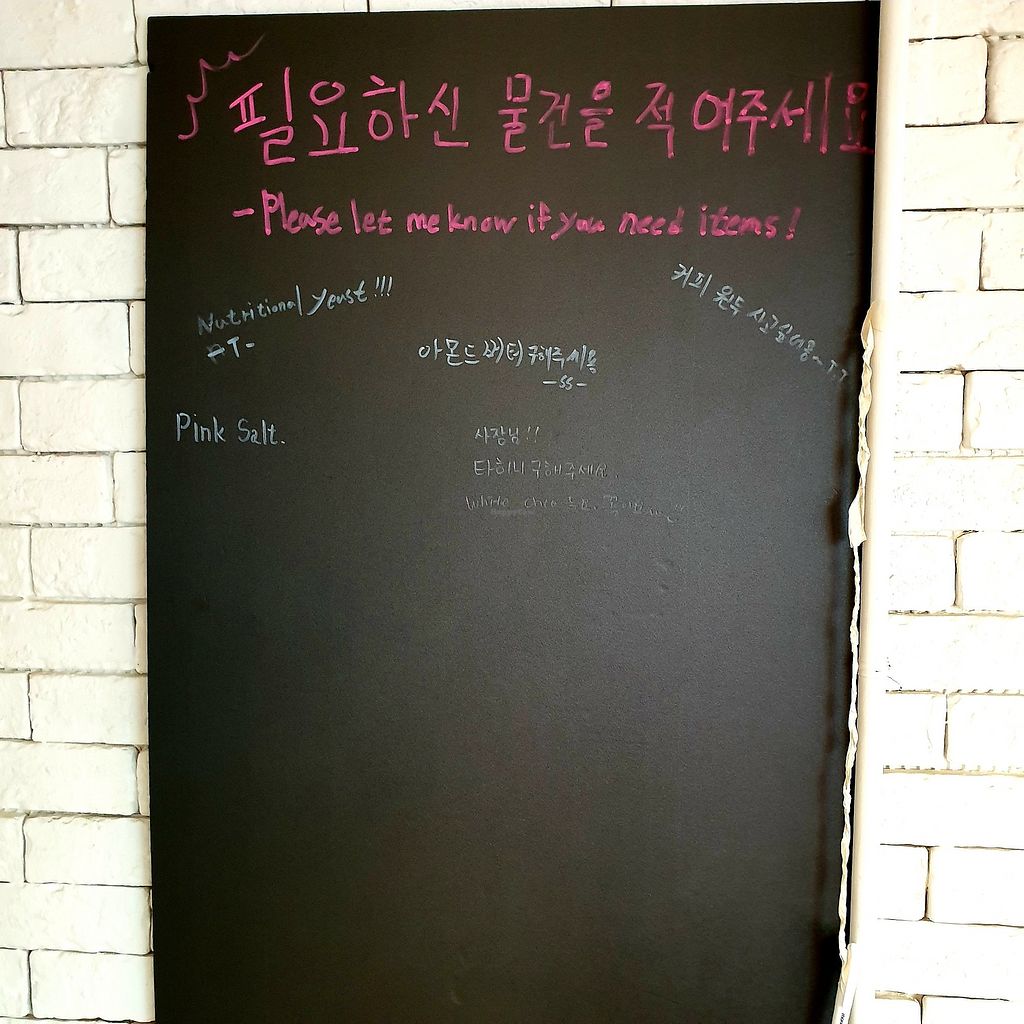 필요하신 물건을 적어주세요
-Please let me know if you need items!
Nutritional yeast!!!
-T-
커피 원두 사고싶어용~ㅜㅜ
아몬드버터 구해주세용
-SS-
Pink Salt.
사장님!!
타히니 구해주세요.
White